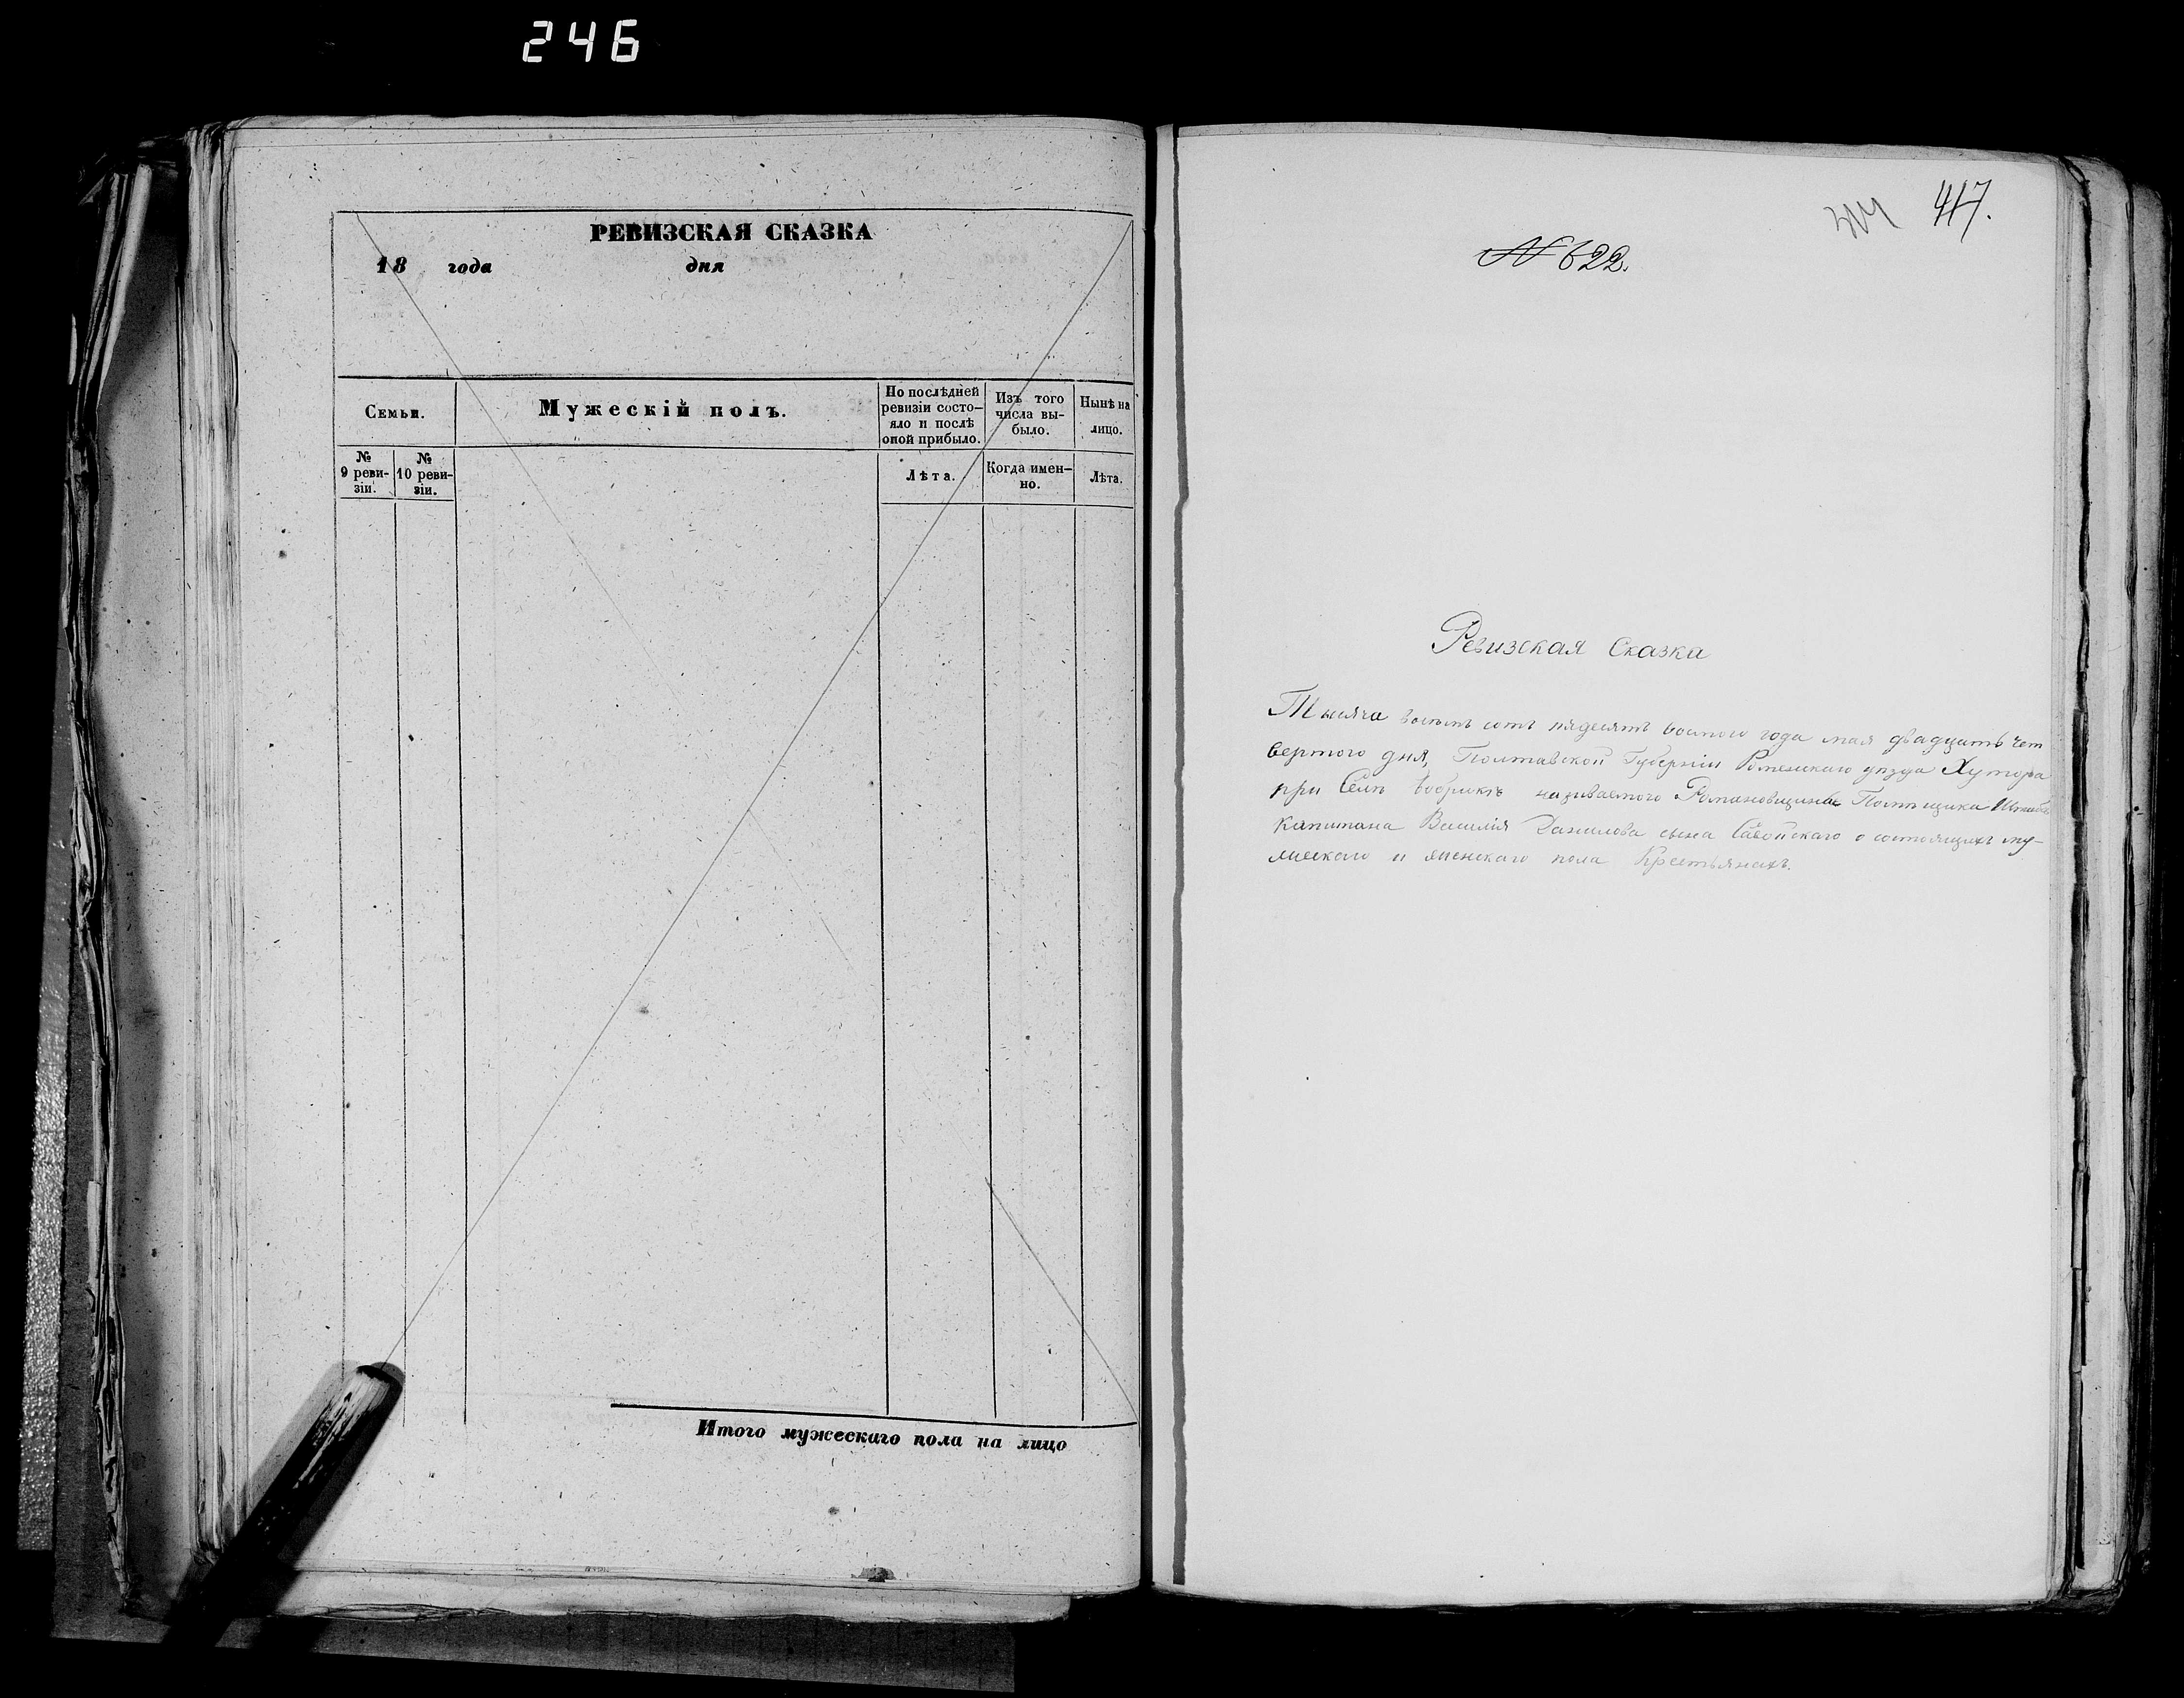 246
РЕВИЗСКАЯ СКАЗКА
18 года дня
Семьи.
Мужескій полъ.
По послѣдней ревизіи состо-
яло и послѣ оной прибыло.
Изъ того числа вы-
было.
Нынѣ на лицо.
№ 9 реви-
зіи.
№ 10 реви-
зіи.
Лѣта.
Когда имен-
но.
Лѣта.
Итого мужескаго пола на лицо
417.
№ 622.
Ревизская Сказка
Тысяча восемь сотъ пядесятъ восмого года мая двадцать чет
вертого дня, Полтавской Губерніи Роменскаго уѣзда Хутора
при Селѣ Бобрикѣ называемого Романовщины Помѣщика Штабсъ
Капитана Василія Данилова сына Савойскаго о состоящихъ му-
жескаго и женскаго пола Крестьянахъ.